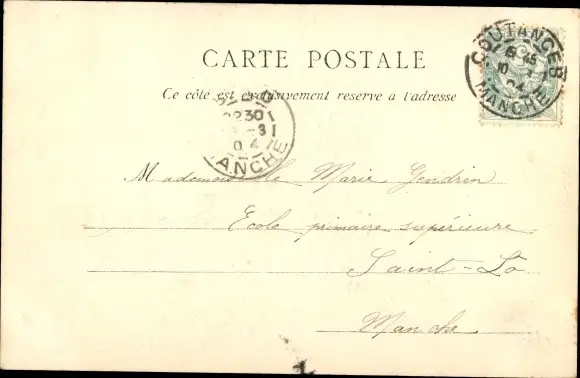 CARTE POSTALE
Ce côté est exclusivement réservé à l'adresse
COUTANCES
MANCHE
2230
04
MANCHE
Mademoiselle Marie Gendrin
Ecole primaire supérieure
Saint-Lo
Manche